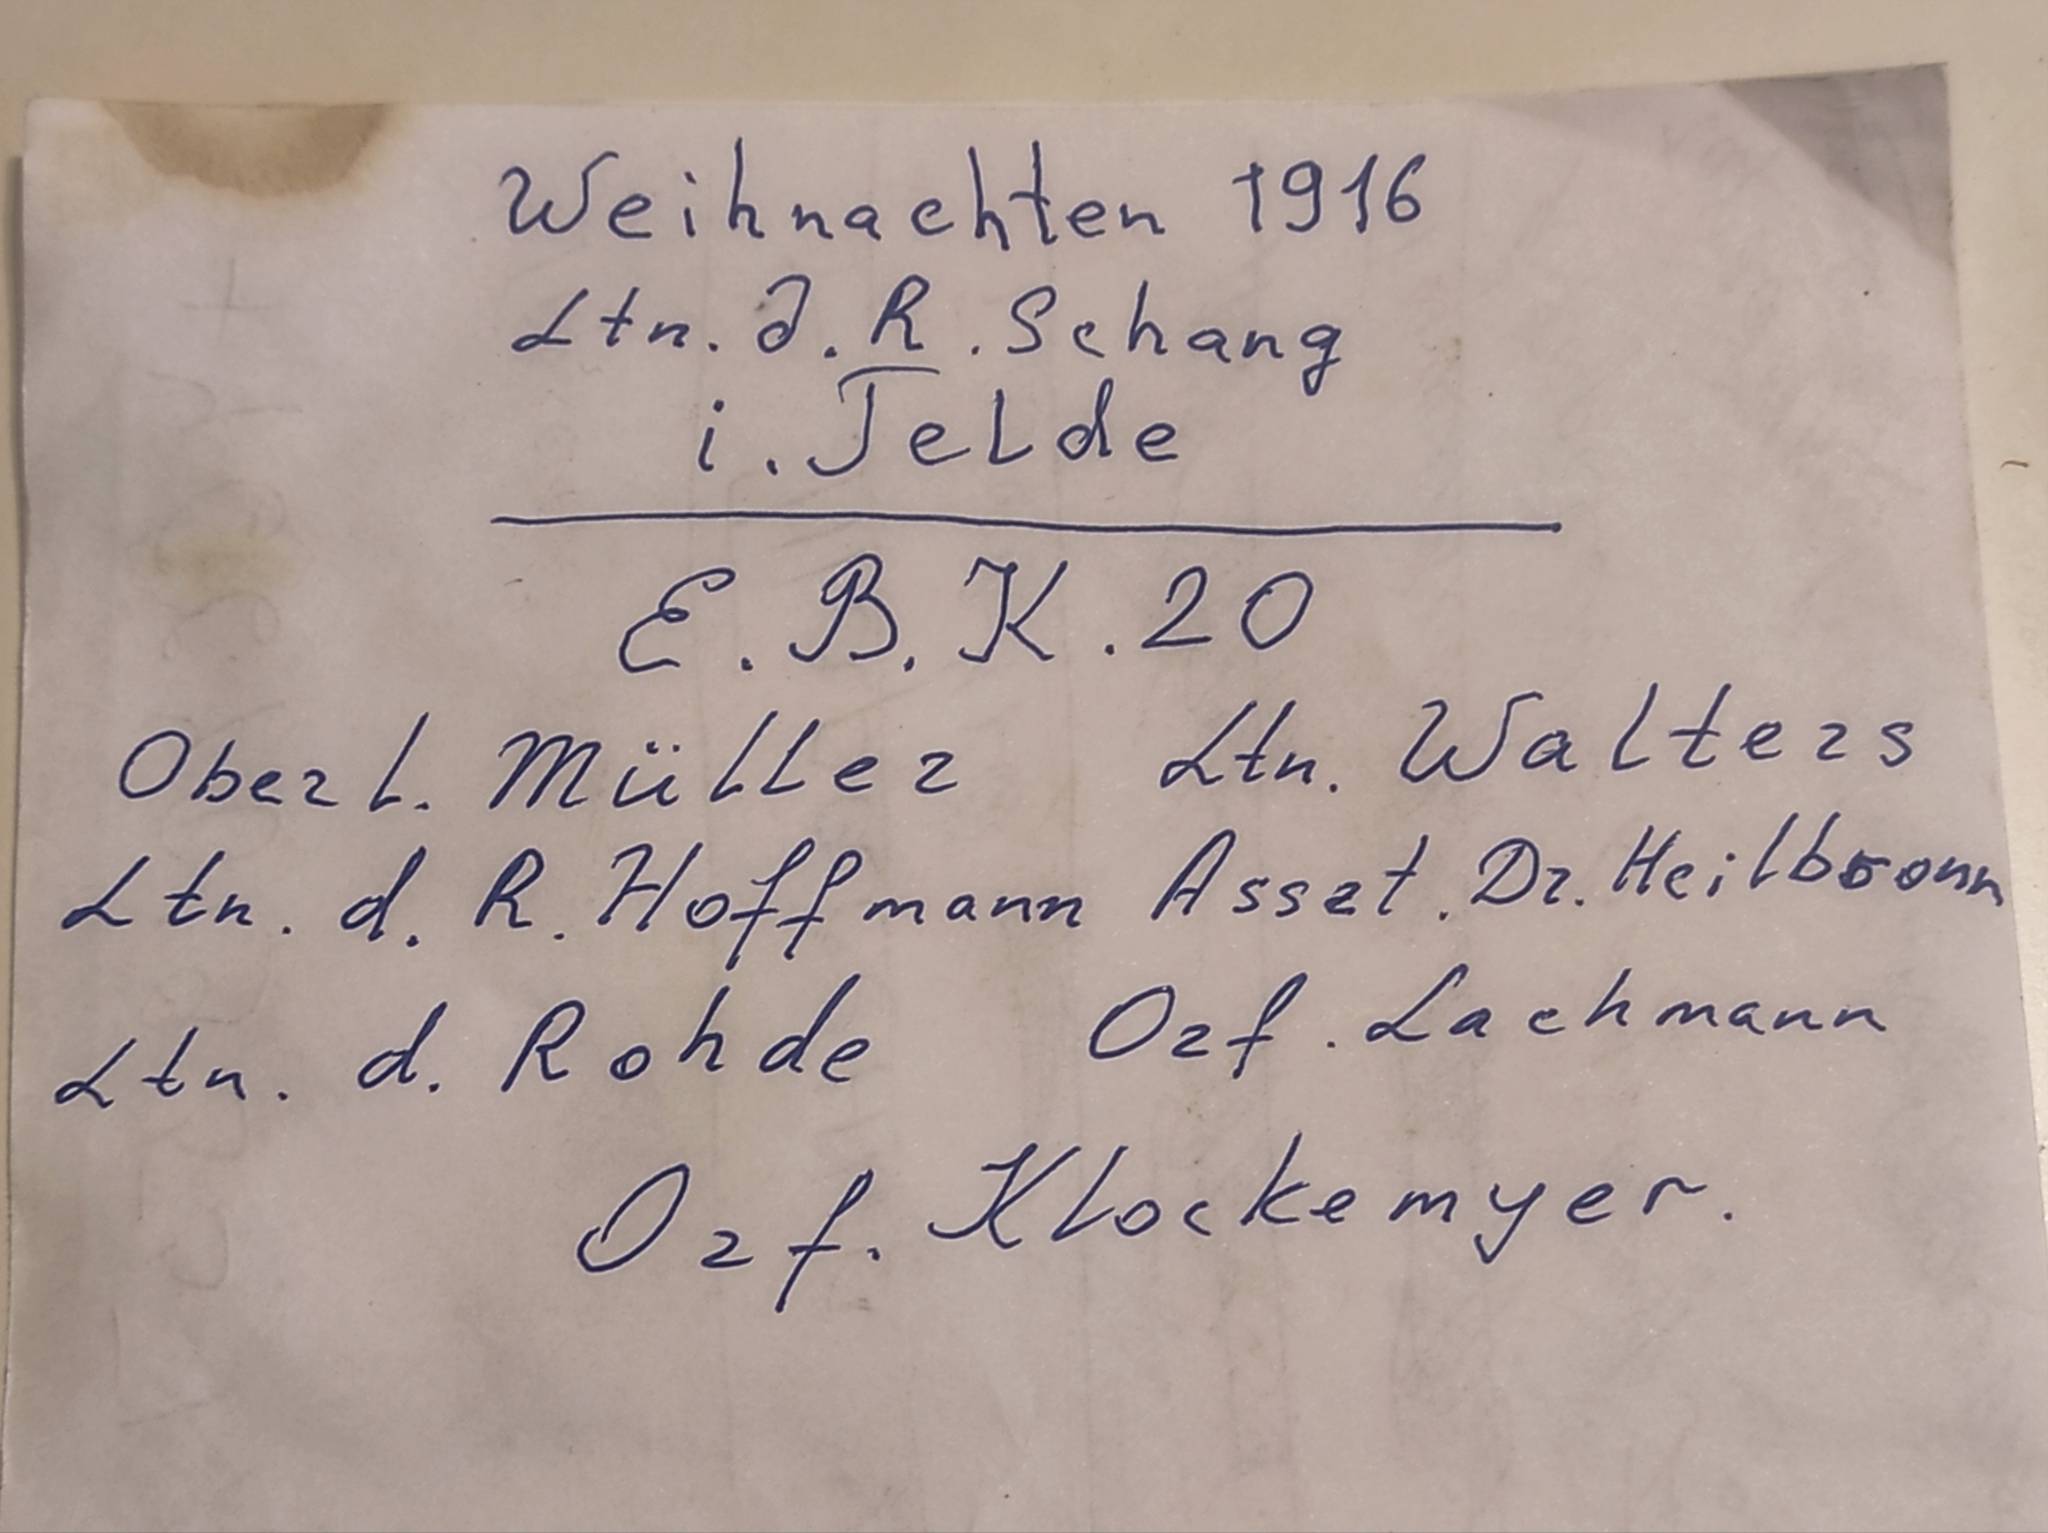 Weihnachten 1916
Ltn. d. R. Schang
i. Felde
E. B. K. 20
Oberl. Müller Ltn. Walters
Ltn. d. R. Hoffmann Assrt. Dr. Heilbronn
Ltn. d. Rohde Ozf. Lachmann
Ozf. Klockemyer.